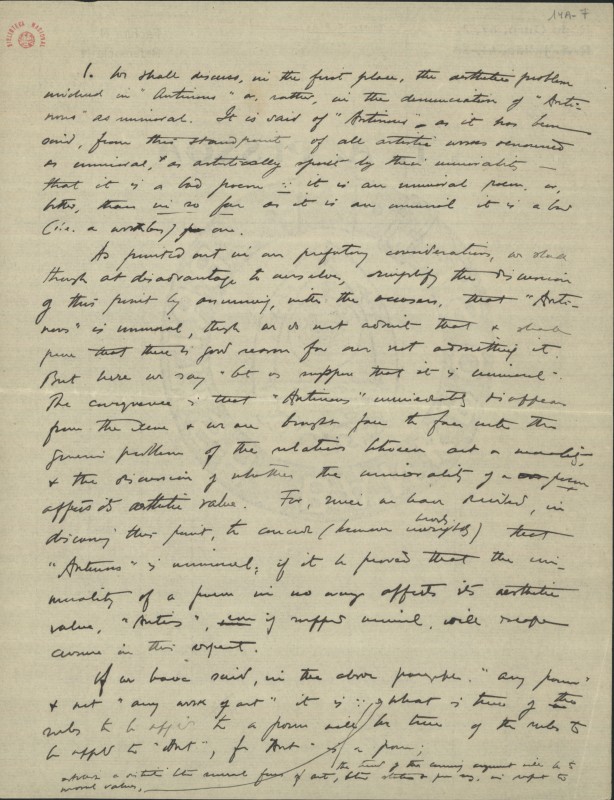 14A-7
BIBLIOTECA NACIONAL
1. We shall discuss, in the first place, the aesthetic problem
involved in "Antinous" or, rather, in the denunciation of "Anti-
nous" as immoral. It is said of "Antinous", as it has been
said, from this standpoint of all artistic works denounced
as immoral, & as artistically spoilt by their immorality —
that it is a bad poem :: it is an immoral poem, or,
better, that in so far as it is an immoral it is a bad
(i.e. a worthless) one.
As pointed out in our prefatory considerations, we shall
though at disadvantage to ourselves, simplify the discussion
of this point by assuming, with the accusers, that "Anti-
nous" is immoral, though we do not admit that & shall
prove that there is good reason for our not admitting it.
But here we say "let us suppose that it is immoral".
The consequence is that "Antinous" immediately disappears
from the scene & we are brought face to face with the
general problem of the relations between art & morality,
& the discussion of whether the immorality of a poem
affects its aesthetic value. For, since we have decided, in
discussing this point, to concede (however wrongly) that
"Antinous" is immoral; if it be proved that the im-
morality of a poem in no way affects its aesthetic
value, "Antinous", even if supposed immoral, will escape
censure in this respect.
If we have said, in the above paragraph, "any poem"
& not "any work of art" it is :: what is true of the
rules to be applied to a poem will be true of the rules to
be applied to "Ant", for "Ant" is a poem;
the trend of the coming argument will be to
several forms of art, in respect to
moral values,